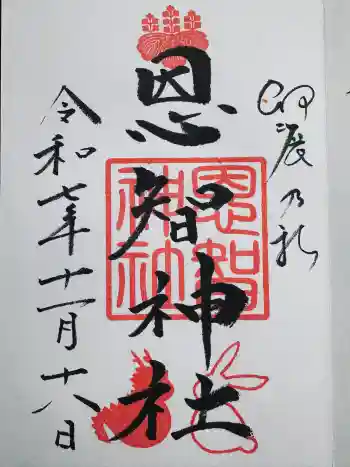 卯辰乃
恩智神社
恩智
神社
令和七年十一月十八日